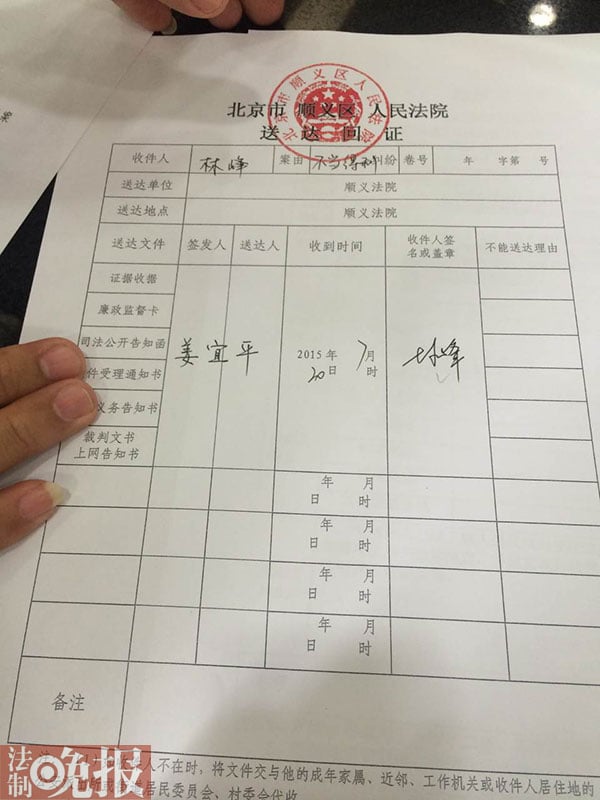 案
北京市 顺义区 人民法院
北京市顺义区人民法院
送 达 回 证
收件人 林峰 案由 不当得利纠纷 卷号 年 字第 号
送达单位 顺义法院
送达地点 顺义法院
送达文件 签发人 送达人 收到时间 收件人签名或盖章 不能送达理由
证据收据
廉政监督卡
司法公开告知函
件受理通知书
义务告知书
裁判文书
上网告知书
姜宜平
2015年 7月
20日 时
林峰
年 月
日 时
年 月
日 时
年 月
日 时
年 月
日 时
备注
人不在时，将文件交与他的成年家属、近邻、工作机关或收件人居住地的
居民委员会、村委会代收
法制晚报